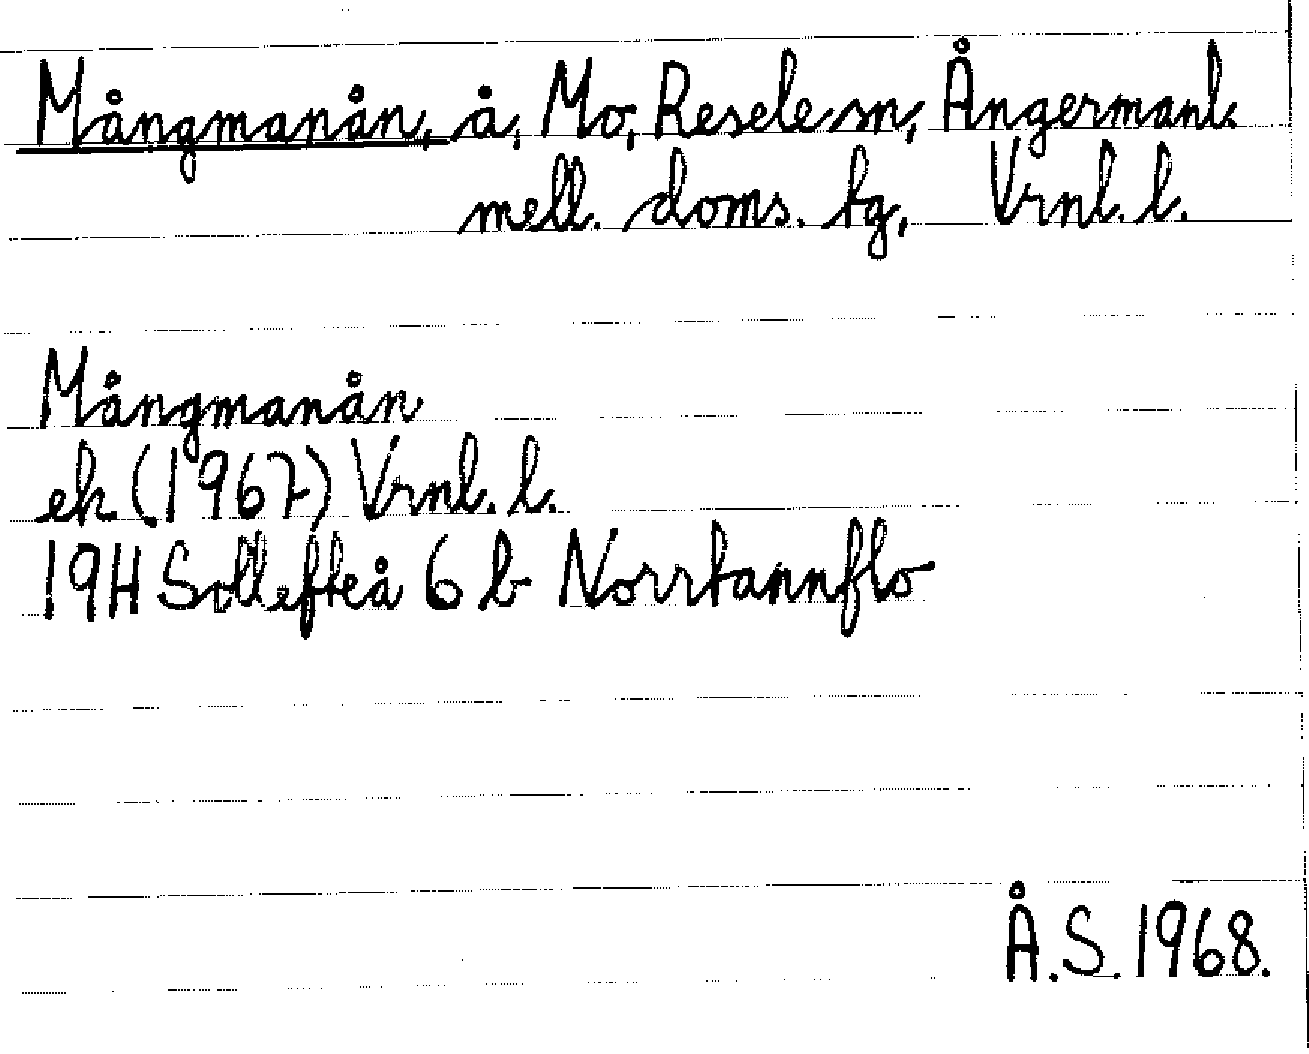 Mångmanån, å, Mo, Resele sn, Ångermanl.
mell. doms. tg, Vrnl. l.
Mångmanån
ek (1967) Vrnl. l.
19H Sollefteå 6 b Norrtannflo
Å.S. 1968.